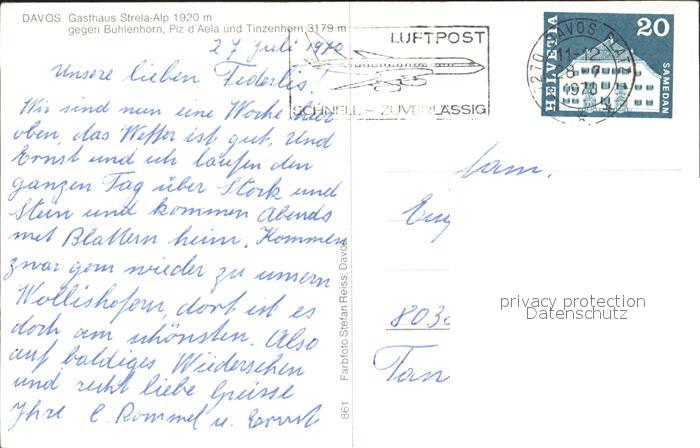 DAVOS Gasthaus Strela-Alp 1920 m
gegen Bühlenhorn, Piz d'Aela und Tinzenhorn 3179 m
27 Juli 1970
Unsere lieben Federlis!
Wir sind nun eine Woche hier
oben, das Wetter ist gut. Und
Ernst und ich laufen den
ganzen Tag über Stock und
Stein und kommen Abends
mit Blattern heim. Kommen
zwar gern wieder zu unsern
Wollishofern, dort ist es
doch am schönsten. Also
auf baldiges Wiedersehen
und recht liebe Grüsse
Ihre E. Rommel u. Ernst
861 Farbfoto Stefan Reiss, Davos
LUFTPOST
SCHNELL - ZUVERLÄSSIG
7270 DAVOS PLATZ
11-12
1970
HELVETIA
20
SAMEDAN
Fam.
Eug
803
Tan
privacy protection
Datenschutz